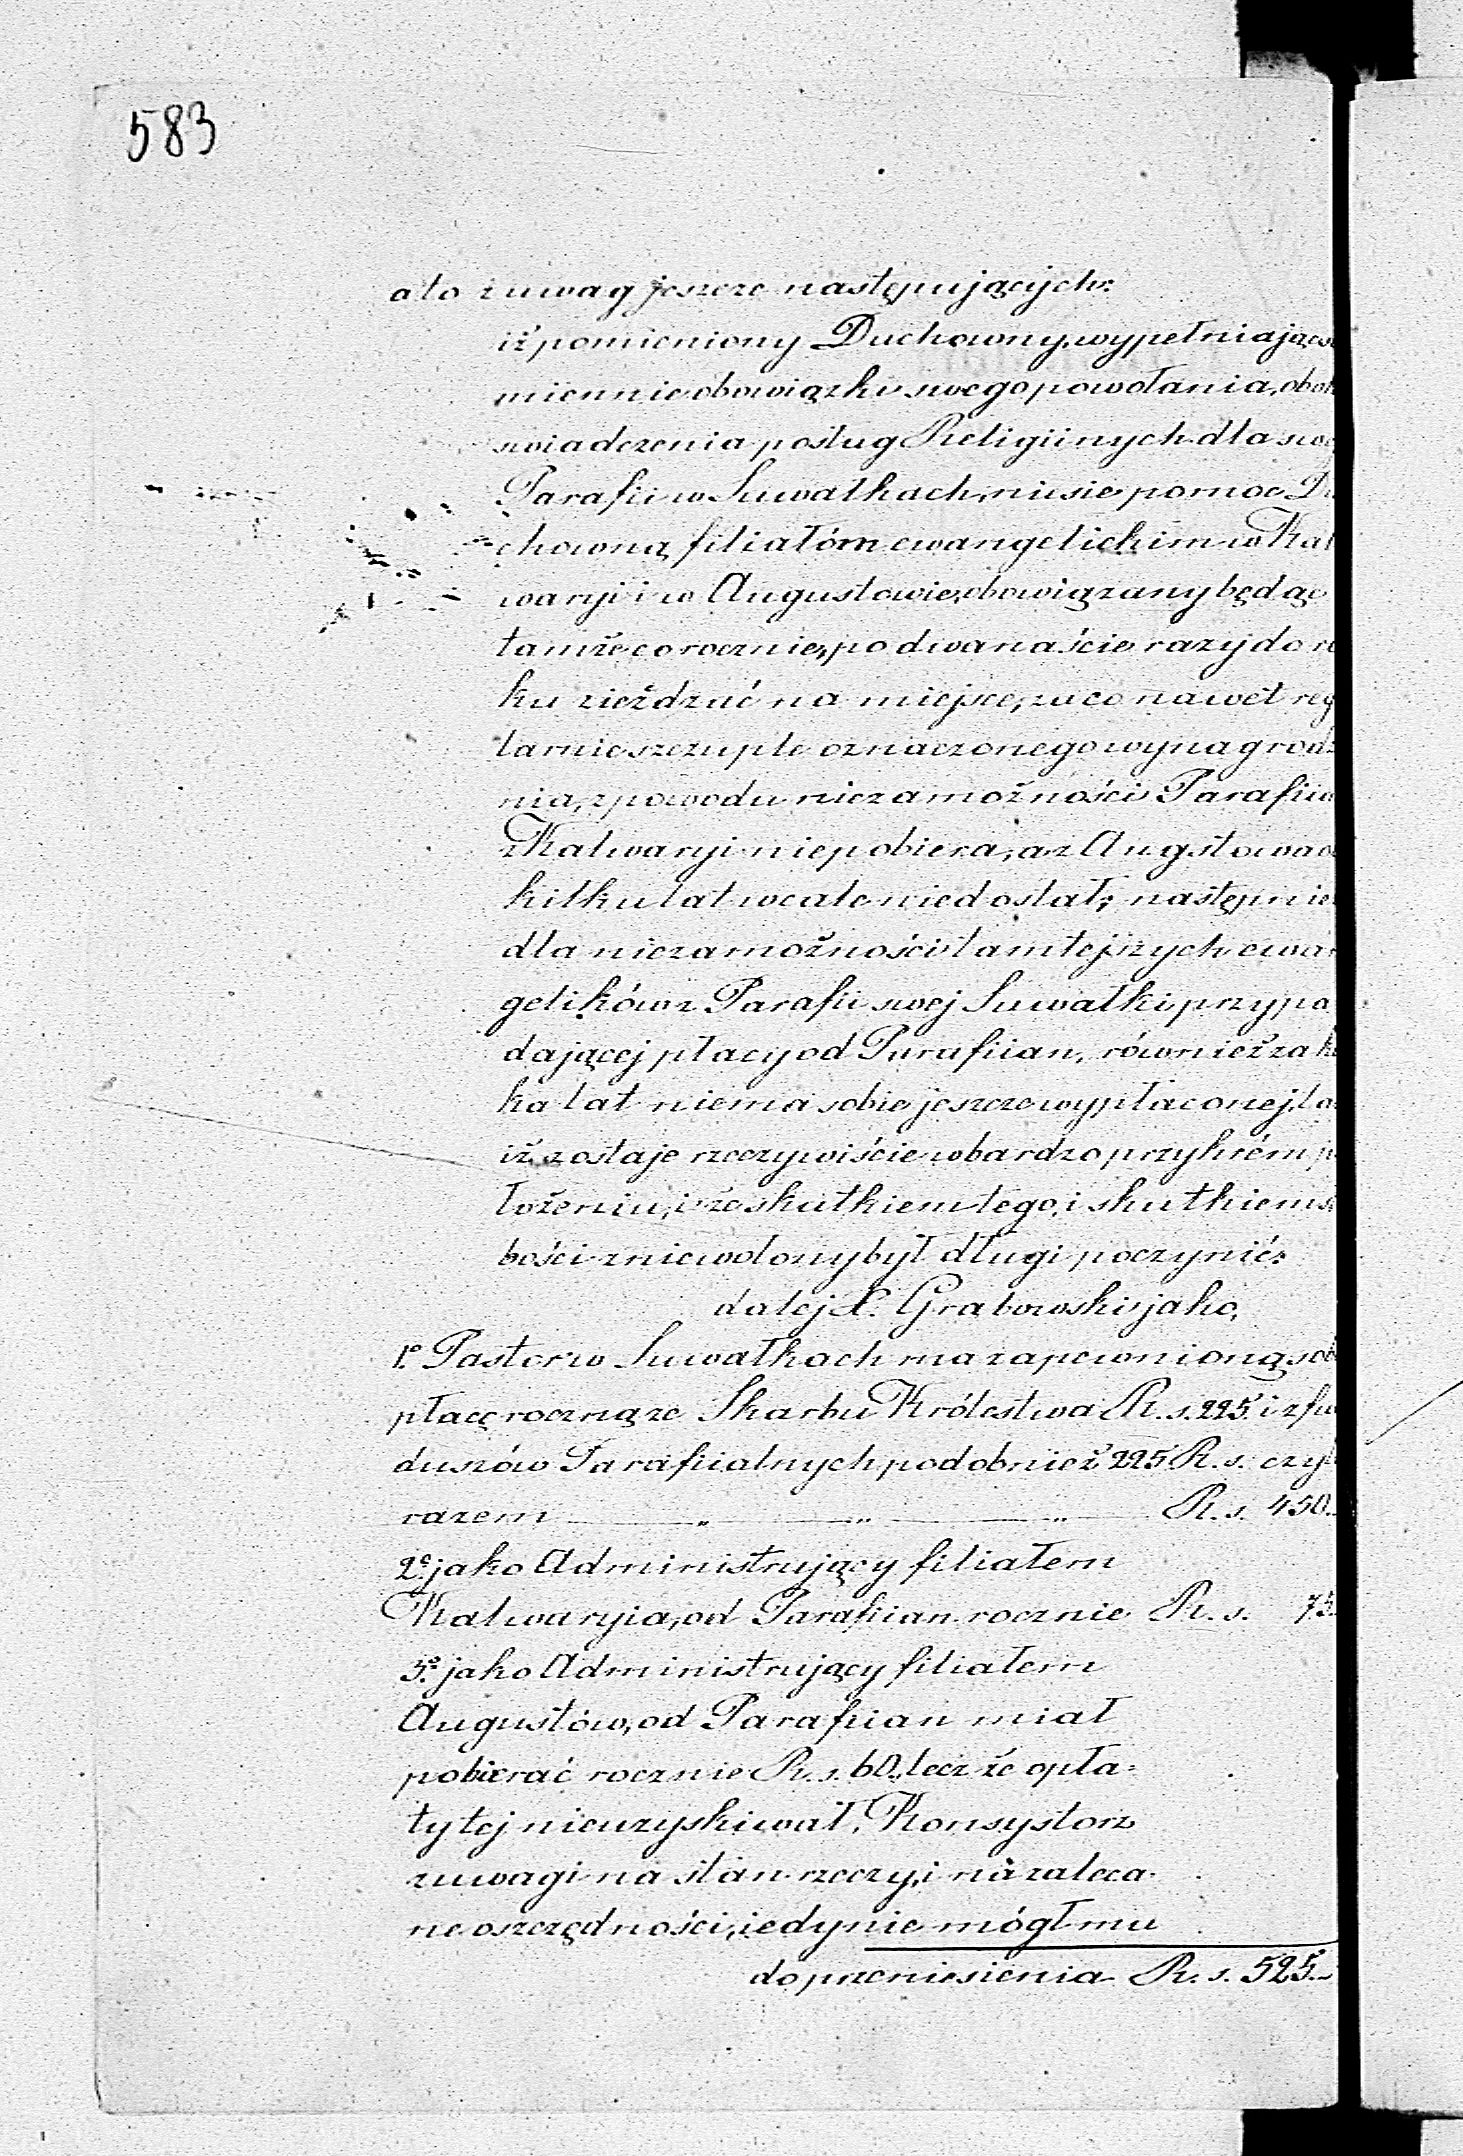 583
a to z uwag jeszcze następujących:
iż pomieniony Duchowny, wypełniając su
miennie obowiązki swego powołania, obok
swiadczenia posług Religiinych dla swej
Parafii w Suwałkach, niesie pomoc Du
chowną filiałóm ewangelickim w Kal
waryi i w Augustowie, obowiązany będąc
tamże corocznie, po dwanaście razy do ro
ku zieżdżać na miejsce, za co nawet regu
larnie szczuple oznaczonego wynagrodze
nia, z powodu niezamożności Parafii w
z Kalwaryi niepobiera, a z Augstowa od
kilku lat wcale niedostał; następnie
dla niezamożności tamtejszych ewan
gelików z Parafii swej Suwałki, przypa
dającej płacy od Parafiian, również za kil
ka lat niema sobie jeszcze wypłaconej, tak
iż zostaje rzeczywiście w bardzo przykrém po
łożeniu, i że skutkiem tego, i skutkiem sła
bości zniewolony był długi poczynić.
dalej X. Grabowski jako,
1º Pastor w Suwałkach ma zapewnioną sobie
płacę roczną ze Skarbu Królestwa R. s. 225. i z fun
duszów Parafiialnych podobnież 225 R. s. czyli
razem — „ — „ — „ — R. s. 450.
2º jako Administrujący filiałem
Kalwaryia, od Parafiian rocznie R. s. 75.
3º jako Administrujący filiałem
Augustów, od Parafiian miał
pobierać rocznie R. s. 60, lecz że opła=
ty tej nieuzyskiwał, Konsystorz
z uwagi na stan rzeczy, i na zaleca-
ne oszczędności, iedynie mógł mu
do przeniesienia R. s. 525.